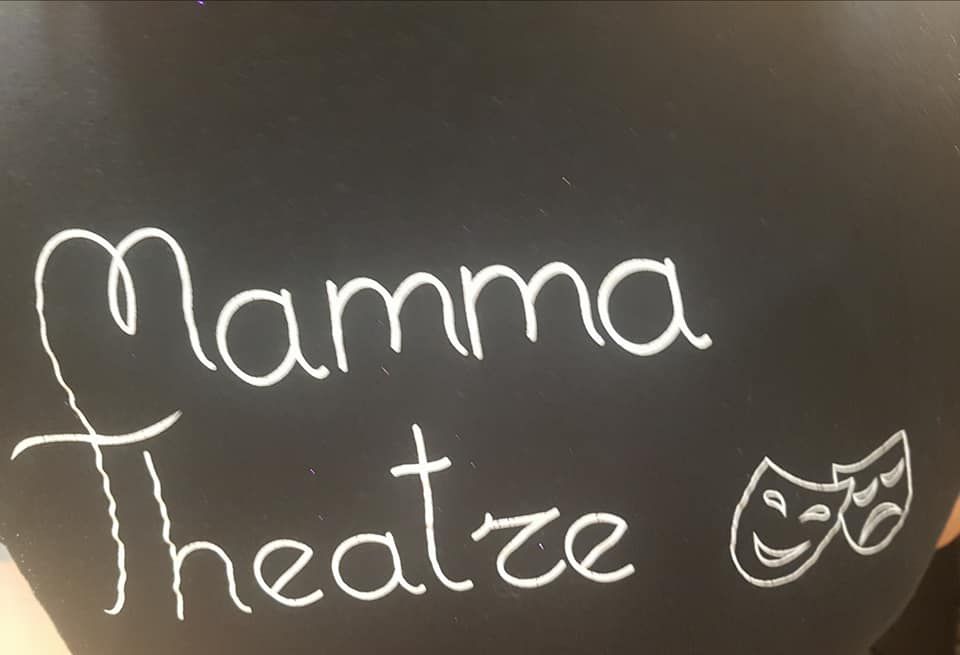 Mamma
Theatre